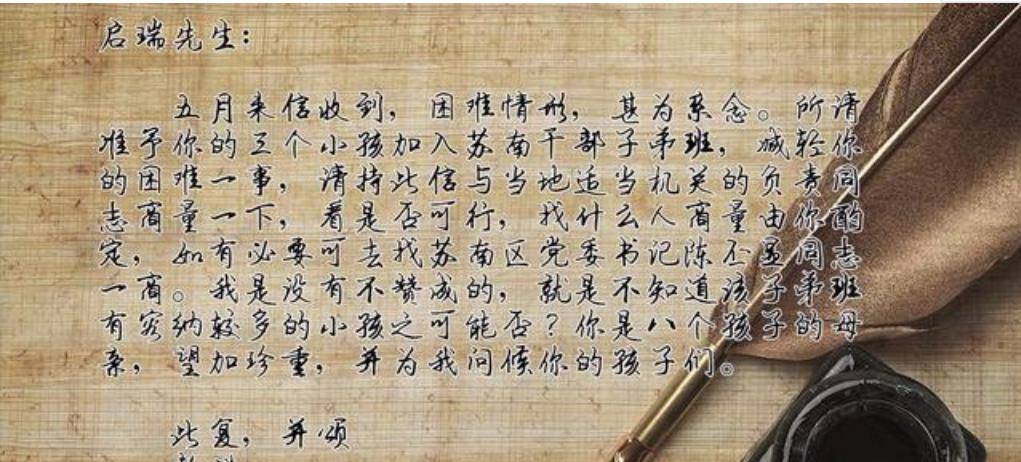 启瑞先生：
五月来信收到，困难情形，甚为系念。所请
准予你的三个小孩加入苏南干部子弟班，减轻你
的困难一事，请持此信与当地适当机关的负责同
志商量一下，看是否可行，找什么人商量由你酌
定，如有必要可去找苏南区党委书记陈丕显同志
一商。我是没有不赞成的，就是不知道该子弟班
有容纳较多的小孩之可能否？你是八个孩子的母
亲，望加珍重，并为我问候你的孩子们。
此复，并颂